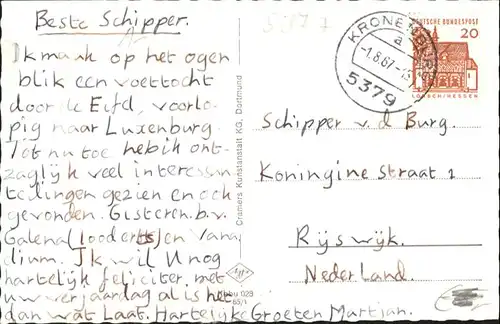 Beste Schipper.
Ik maak op het ogen
blik een voettocht
door de Eifel, voorlo-
pig naar Luxenburg.
Tot nu toe heb ik ont-
zaglijk veel interessan
te dingen gezien en ook
gevonden. Gisteren b.v.
Galena (looderts) en Vana
dium. Ik wil U nog
hartelijk feliciter. met
uw verjaardag al is het
dan wat Laat. Hartelijke Groeten Martjan.
Cramers Kunstanstalt KG, Dortmund
028
65/1
KRONENBURG
a
-1.8.67-
5379
DEUTSCHE BUNDESPOST
20
LORSCH/HESSEN
Schipper v. d Burg.
Koningine straat 1
Rijswijk.
Nederland.